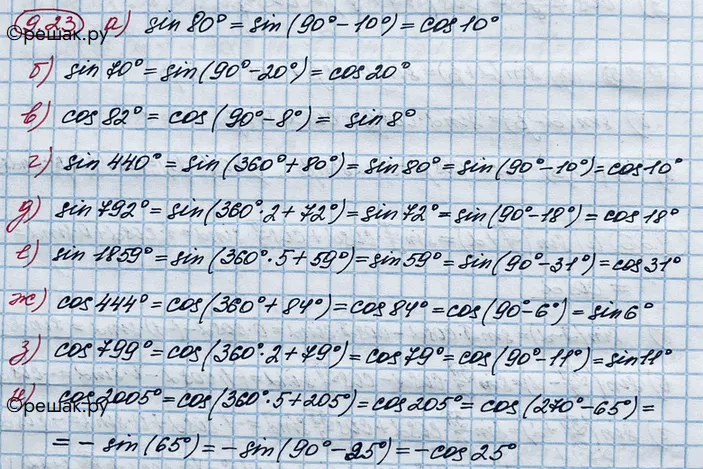 9.23 а) sin 80° = sin (90° - 10°) = cos 10°
©решак.ру
б) sin 70° = sin (90° - 20°) = cos 20°
в) cos 82° = cos (90° - 8°) = sin 8°
г) sin 440° = sin (360° + 80°) = sin 80° = sin (90° - 10°) = cos 10°
д) sin 792° = sin (360° · 2 + 72°) = sin 72° = sin (90° - 18°) = cos 18°
е) sin 1859° = sin (360° · 5 + 59°) = sin 59° = sin (90° - 31°) = cos 31°
ж) cos 444° = cos (360° + 84°) = cos 84° = cos (90° - 6°) = sin 6°
з) cos 799° = cos (360° · 2 + 79°) = cos 79° = cos (90° - 11°) = sin 11°
и) cos 2005° = cos (360° · 5 + 205°) = cos 205° = cos (270° - 65°) =
©решак.ру
= - sin (65°) = - sin (90° - 25°) = - cos 25°